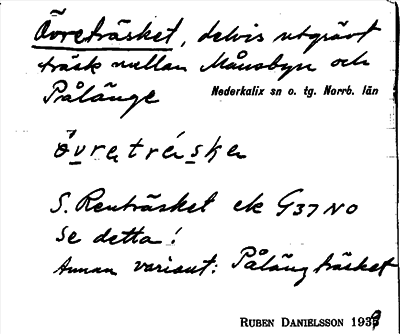 Övreträsket, delvis utgrävt
träsk mellan Månsbyn och
Pålänge
Nederkalix sn o. tg. Norrb. län
övretrésken
S. Renträsket ek G37 NO
Se detta!
Annan variant: Pålängträsket
RUBEN DANIELSSON 193